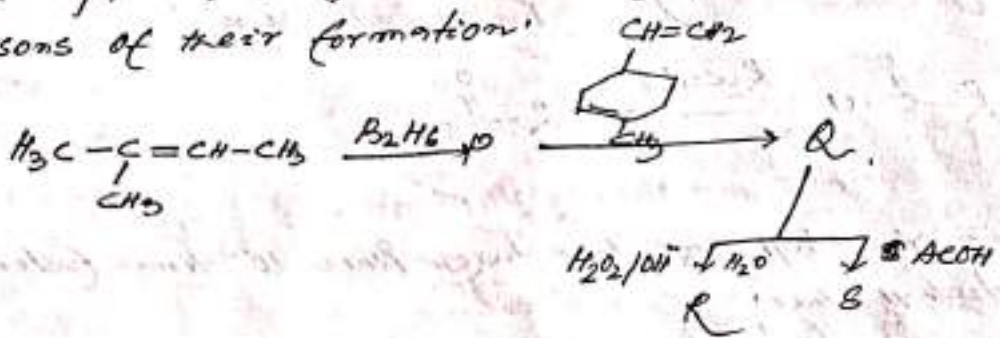 sons of their formation'
CH=CH2
CH3
H3C-C=CH-CH3 B2H6 P Q.
CH3
H2O2/OH- H2O AcOH
R S